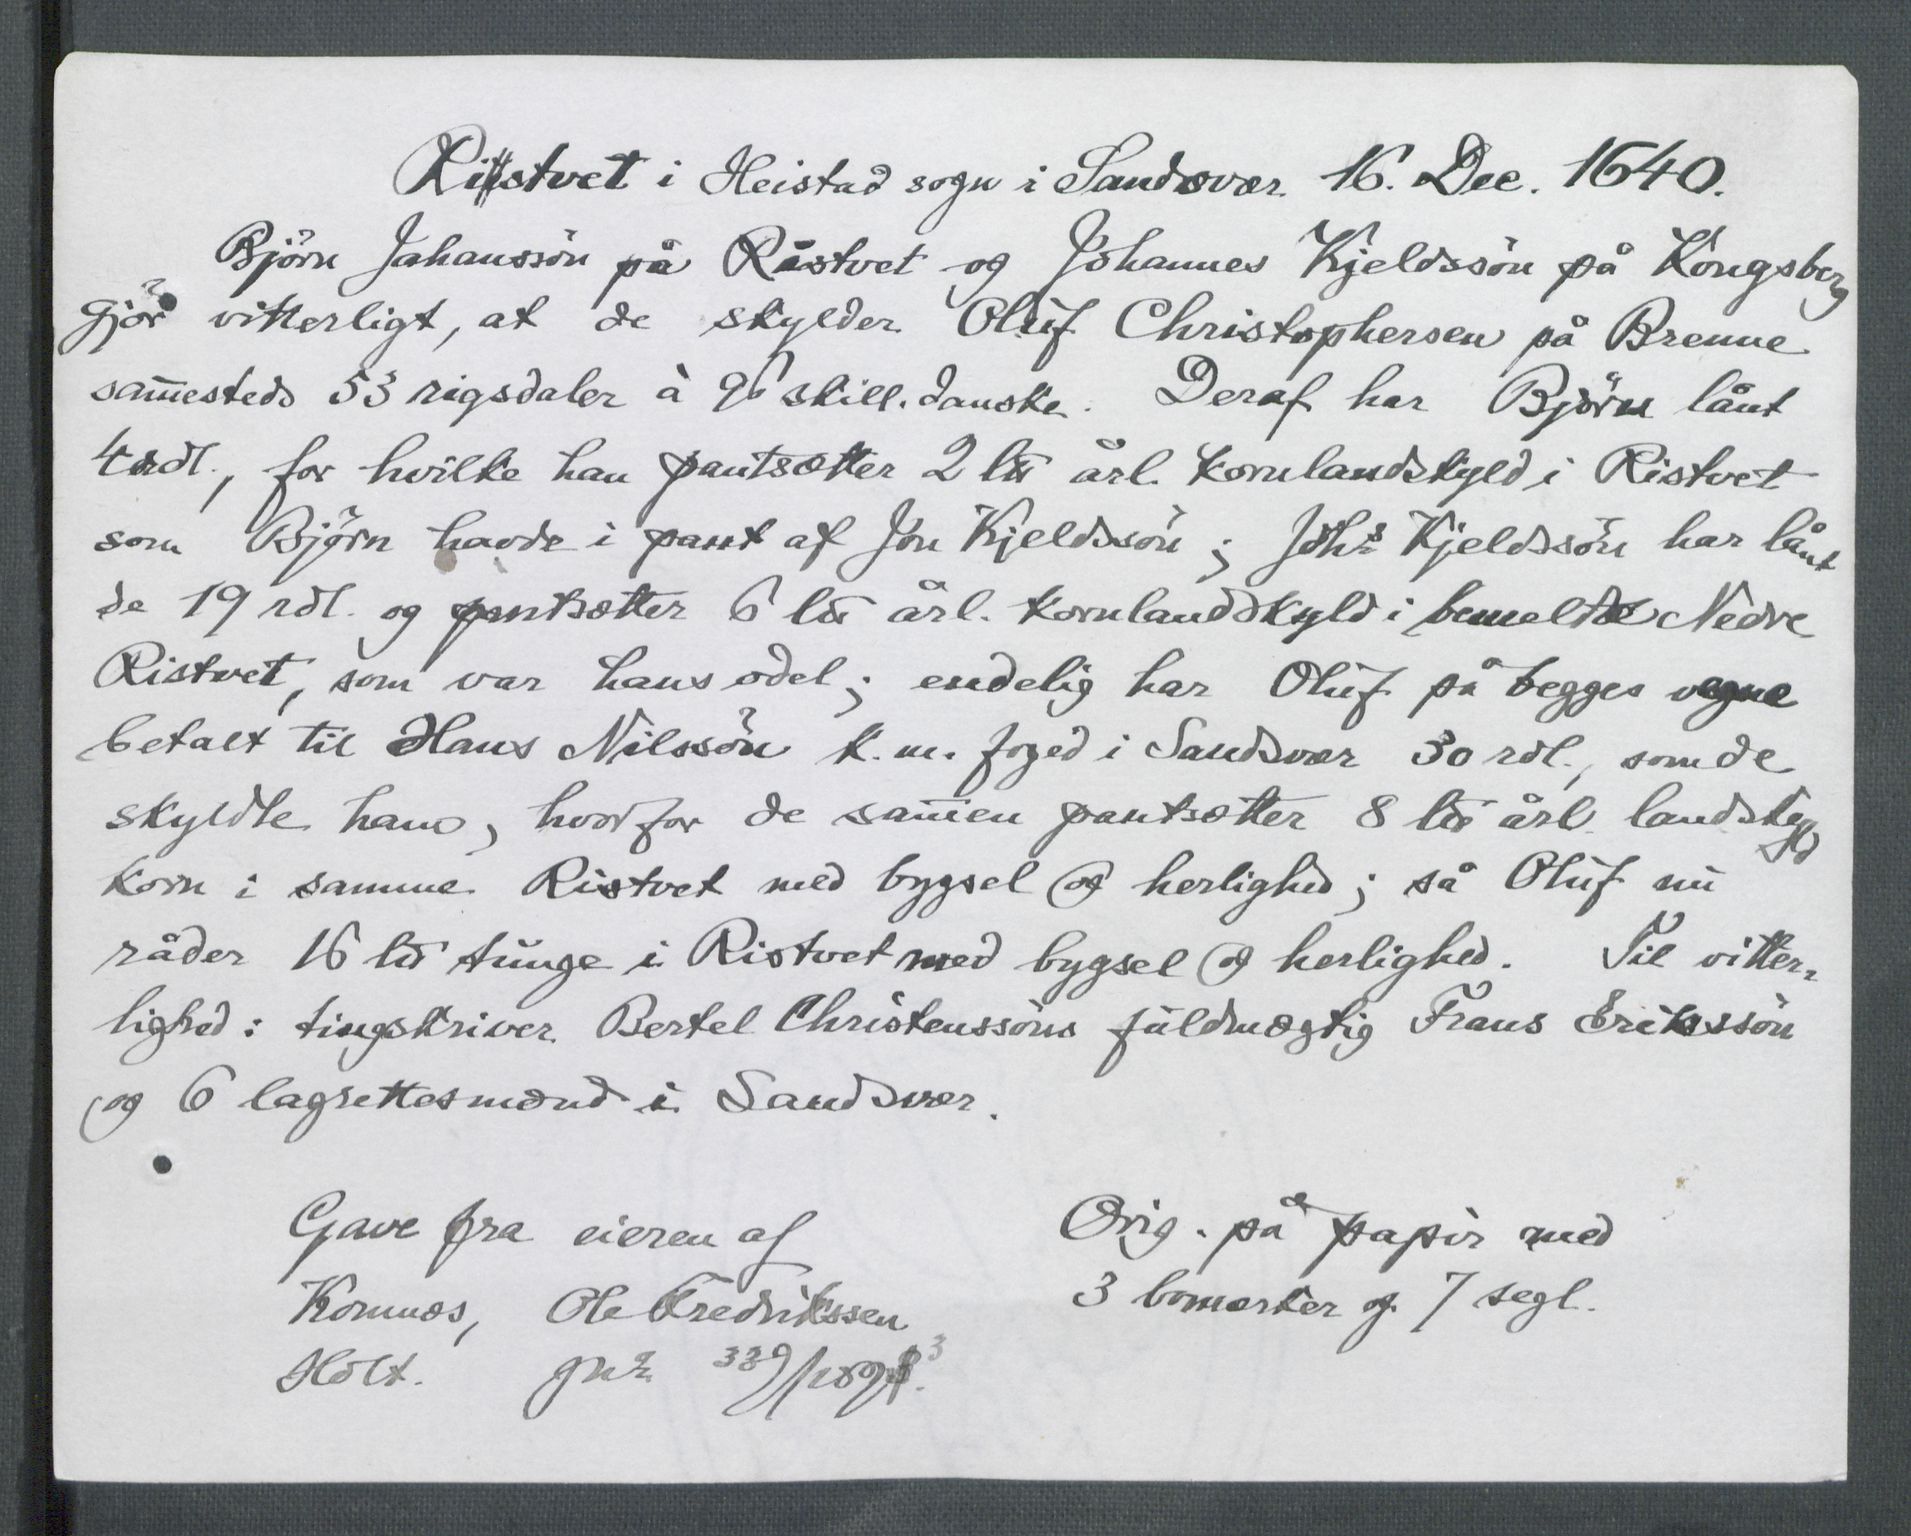 Ristvet i Heistad sogn i Sandsvær 16. Dec. 1640.
Björn Jahanssön på Ristvet og Johannes Kjeldssön på Kongsberg
gjör vitterligt, at de skylder Oluf Christophersen på Brenne
sam̄esteds 53 rigsdaler à 96 skill. danske. Deraf har Björn lånt
4 rdl., for hvilke han pantsætter 2 l℔ årl. kornlandskyld i Ristvet
som Björn havde i pant af Jon Kjeldssön; Johs Kjeldssön har lånt
de 19 rdl. og pantsætter 6 l℔ årl. kornlandskyld i bemeldte Nedre
Ristvet, som var hans odel; endelig har Oluf på begges vegne
betalt til Hans Nilssön k. m. foged i Sandsvær 30 rdl., som de
skyldte ham, hvorfor de sam̄en pantsætter 8 l℔ årl. landskyld
korn i samme Ristvet med bygsel og herlighed; så Oluf nu
råder 16 l℔ tunge i Ristvet med bygsel og herlighed. Til vitter-
lighed: tingskriver Bertel Christenssöns fuldmægtig Frans Erikssön
og 6 lagrettesmænd i Sandsvær.
Gave fra eieren af
Komnæs, Ole Fredrikssen
Holt. jnr 339/1893.
Orig. på papir med
3 bomærker og 7 segl.